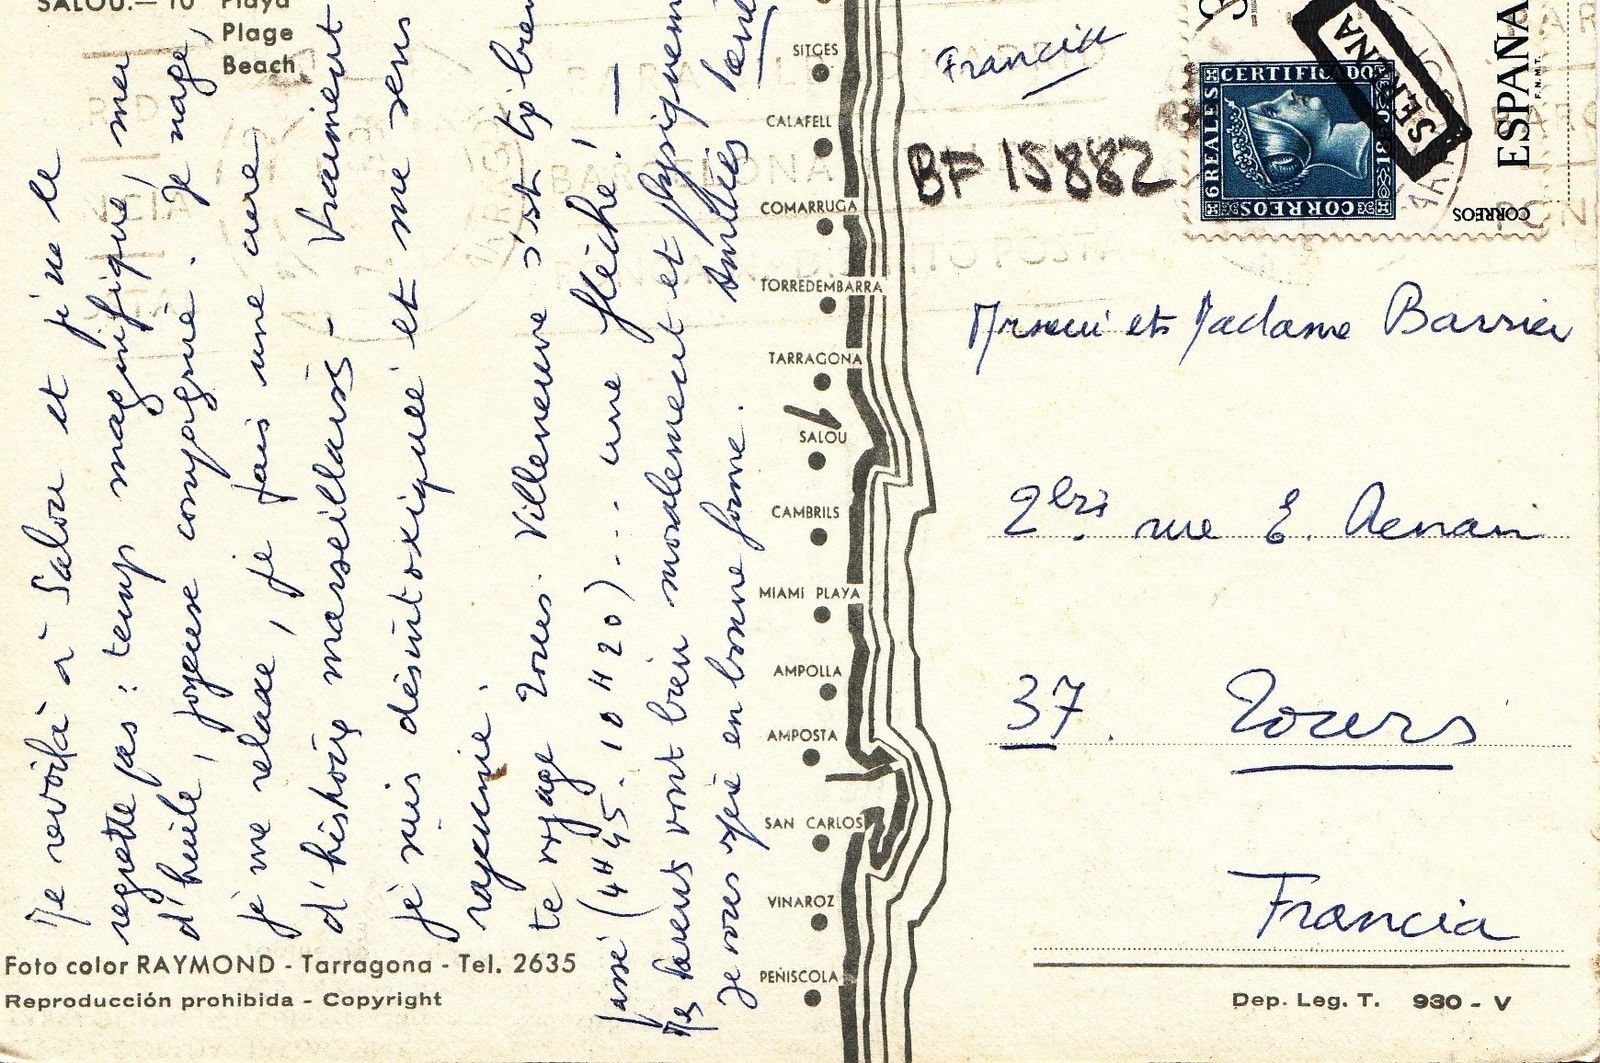 SALOU.— 10 Playa
Plage
Beach
Me revoilà à Salou et je ne le
regrette pas : temps magnifique, mer
d'huile, joyeuse compagnie. Je nage,
je me relaxe, je fais une cure
d'histoires marseillaises - Vraiment
je suis désintoxiquée et me sens
rajeunie.
te voyage Tours. Villeneuve s'est très bien
passé (4H45. 10H20)... une flèche! —
Mes parents vont bien moralement et physiquement
Je vous espère en bonne forme.
Amitiés
Foto color RAYMOND - Tarragona - Tel. 2635
Reproducción prohibida - Copyright
SITGES
CALAFELL
COMARRUGA
TORREDEMBARRA
TARRAGONA
SALOU
CAMBRILS
MIAMI PLAYA
AMPOLLA
AMPOSTA
SAN CARLOS
VINAROZ
PEÑISCOLA
Francia
BF 15882
CERTIFICADO
6 REALES
1850
CORREOS
SERENA
ESPAÑA
F.N.M.T.
CORREOS
Monsieur et Madame Barrier
2bis rue E. Renan
37. Tours
Francia
Dep. Leg. T. 930 - V